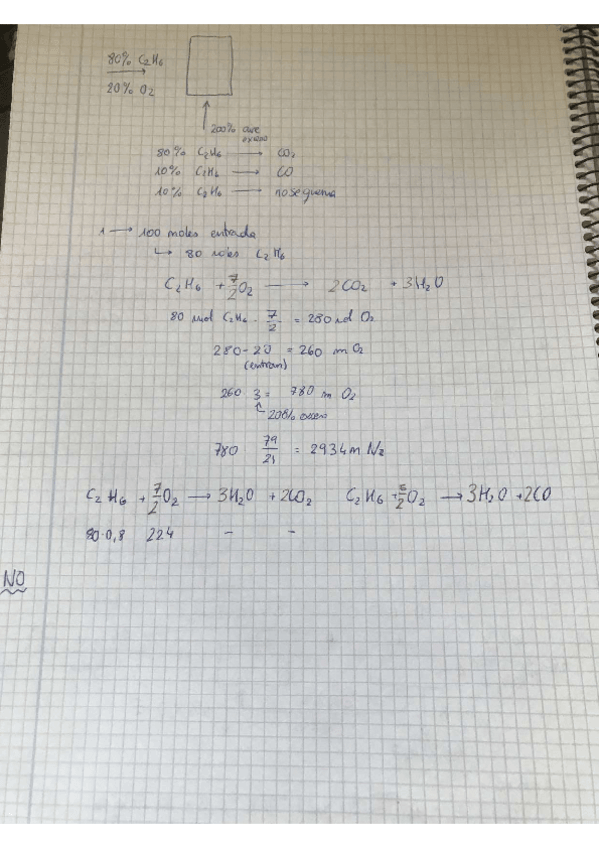 80% C₂H₆
20% O₂
200% aire
exceso
80% C₂H₆ → CO₂
10% C₂H₆ → CO
10% C₂H₆ — no se quema
1 → 100 moles entrada
↳ 80 moles C₂H₆
C₂H₆ + 7/2 O₂ → 2CO₂ + 3H₂O
80 mol C₂H₆ · 7/2 = 280 mol O₂
280 - 20 = 260 m O₂
(entran)
260 · 3 = 780 m O₂
200% exceso
780 79/21 = 2934 m N₂
C₂H₆ + 7/2 O₂ → 3H₂O + 2CO₂ C₂H₆ + 5/2 O₂ → 3H₂O + 2CO
80·0,8 224 - -
NO